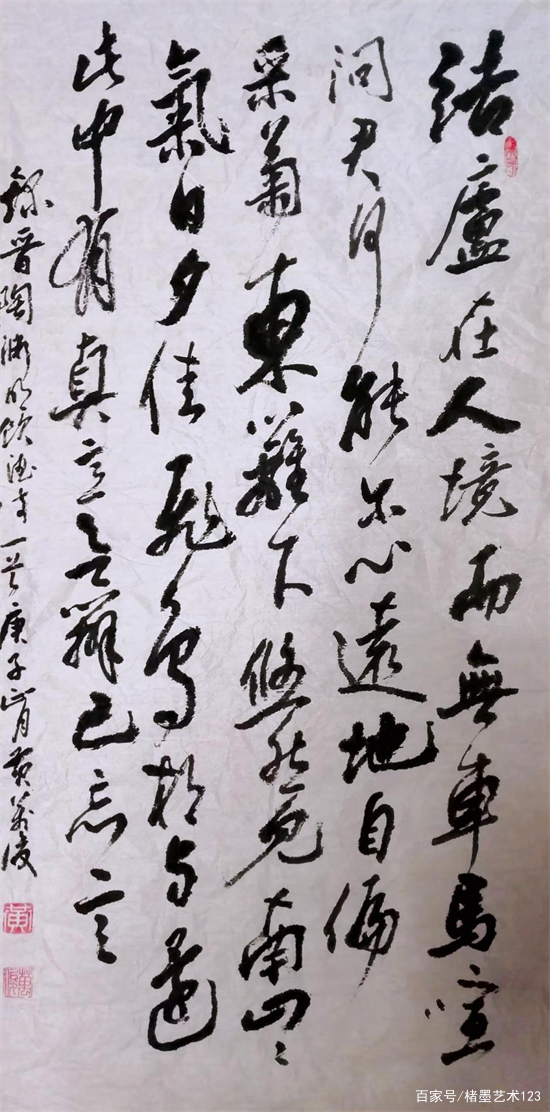 結廬在人境而無車馬喧
问君何能尔心遠地自偏
采菊東籬下悠然見南山〻
氣日夕佳飛鳥相与還
此中有真意欲辨已忘言
錄晋陶渊明饮酒诗一首庚子正月黄萬
百家号/楮墨艺术123